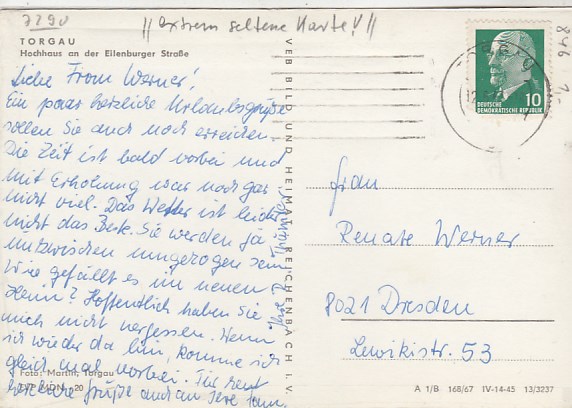 7290
!! extrem seltene Karte! !!
846
TORGAU
Hochhaus an der Eilenburger Straße
Liebe Frau Werner!
Ein paar herzliche Urlaubsgrüße
sollen Sie auch noch erreichen.
Die Zeit ist bald vorbei und
mit Erholung war noch gar
nicht viel. Das Wetter ist leider
nicht das Beste. Sie werden ja
inzwischen umgezogen sein.
Wie gefällt es im neuen
Heim? Hoffentlich haben Sie
mich nicht vergessen. Wenn
ich wieder da bin, komme ich
gleich mal vorbei. Für heut
herzliche Grüße auch an Ihre Fam.
Ihre
Foto: Martin, Torgau
20
VEB BILD UND HEIMAT REICHENBACH I. V.
DEUTSCHE
DEMOKRATISCHE REPUBLIK
10
Frau
Renate Werner
8021 Dresden
Lewikistr. 53
A 1/B 168/67 IV-14-45 13/3237